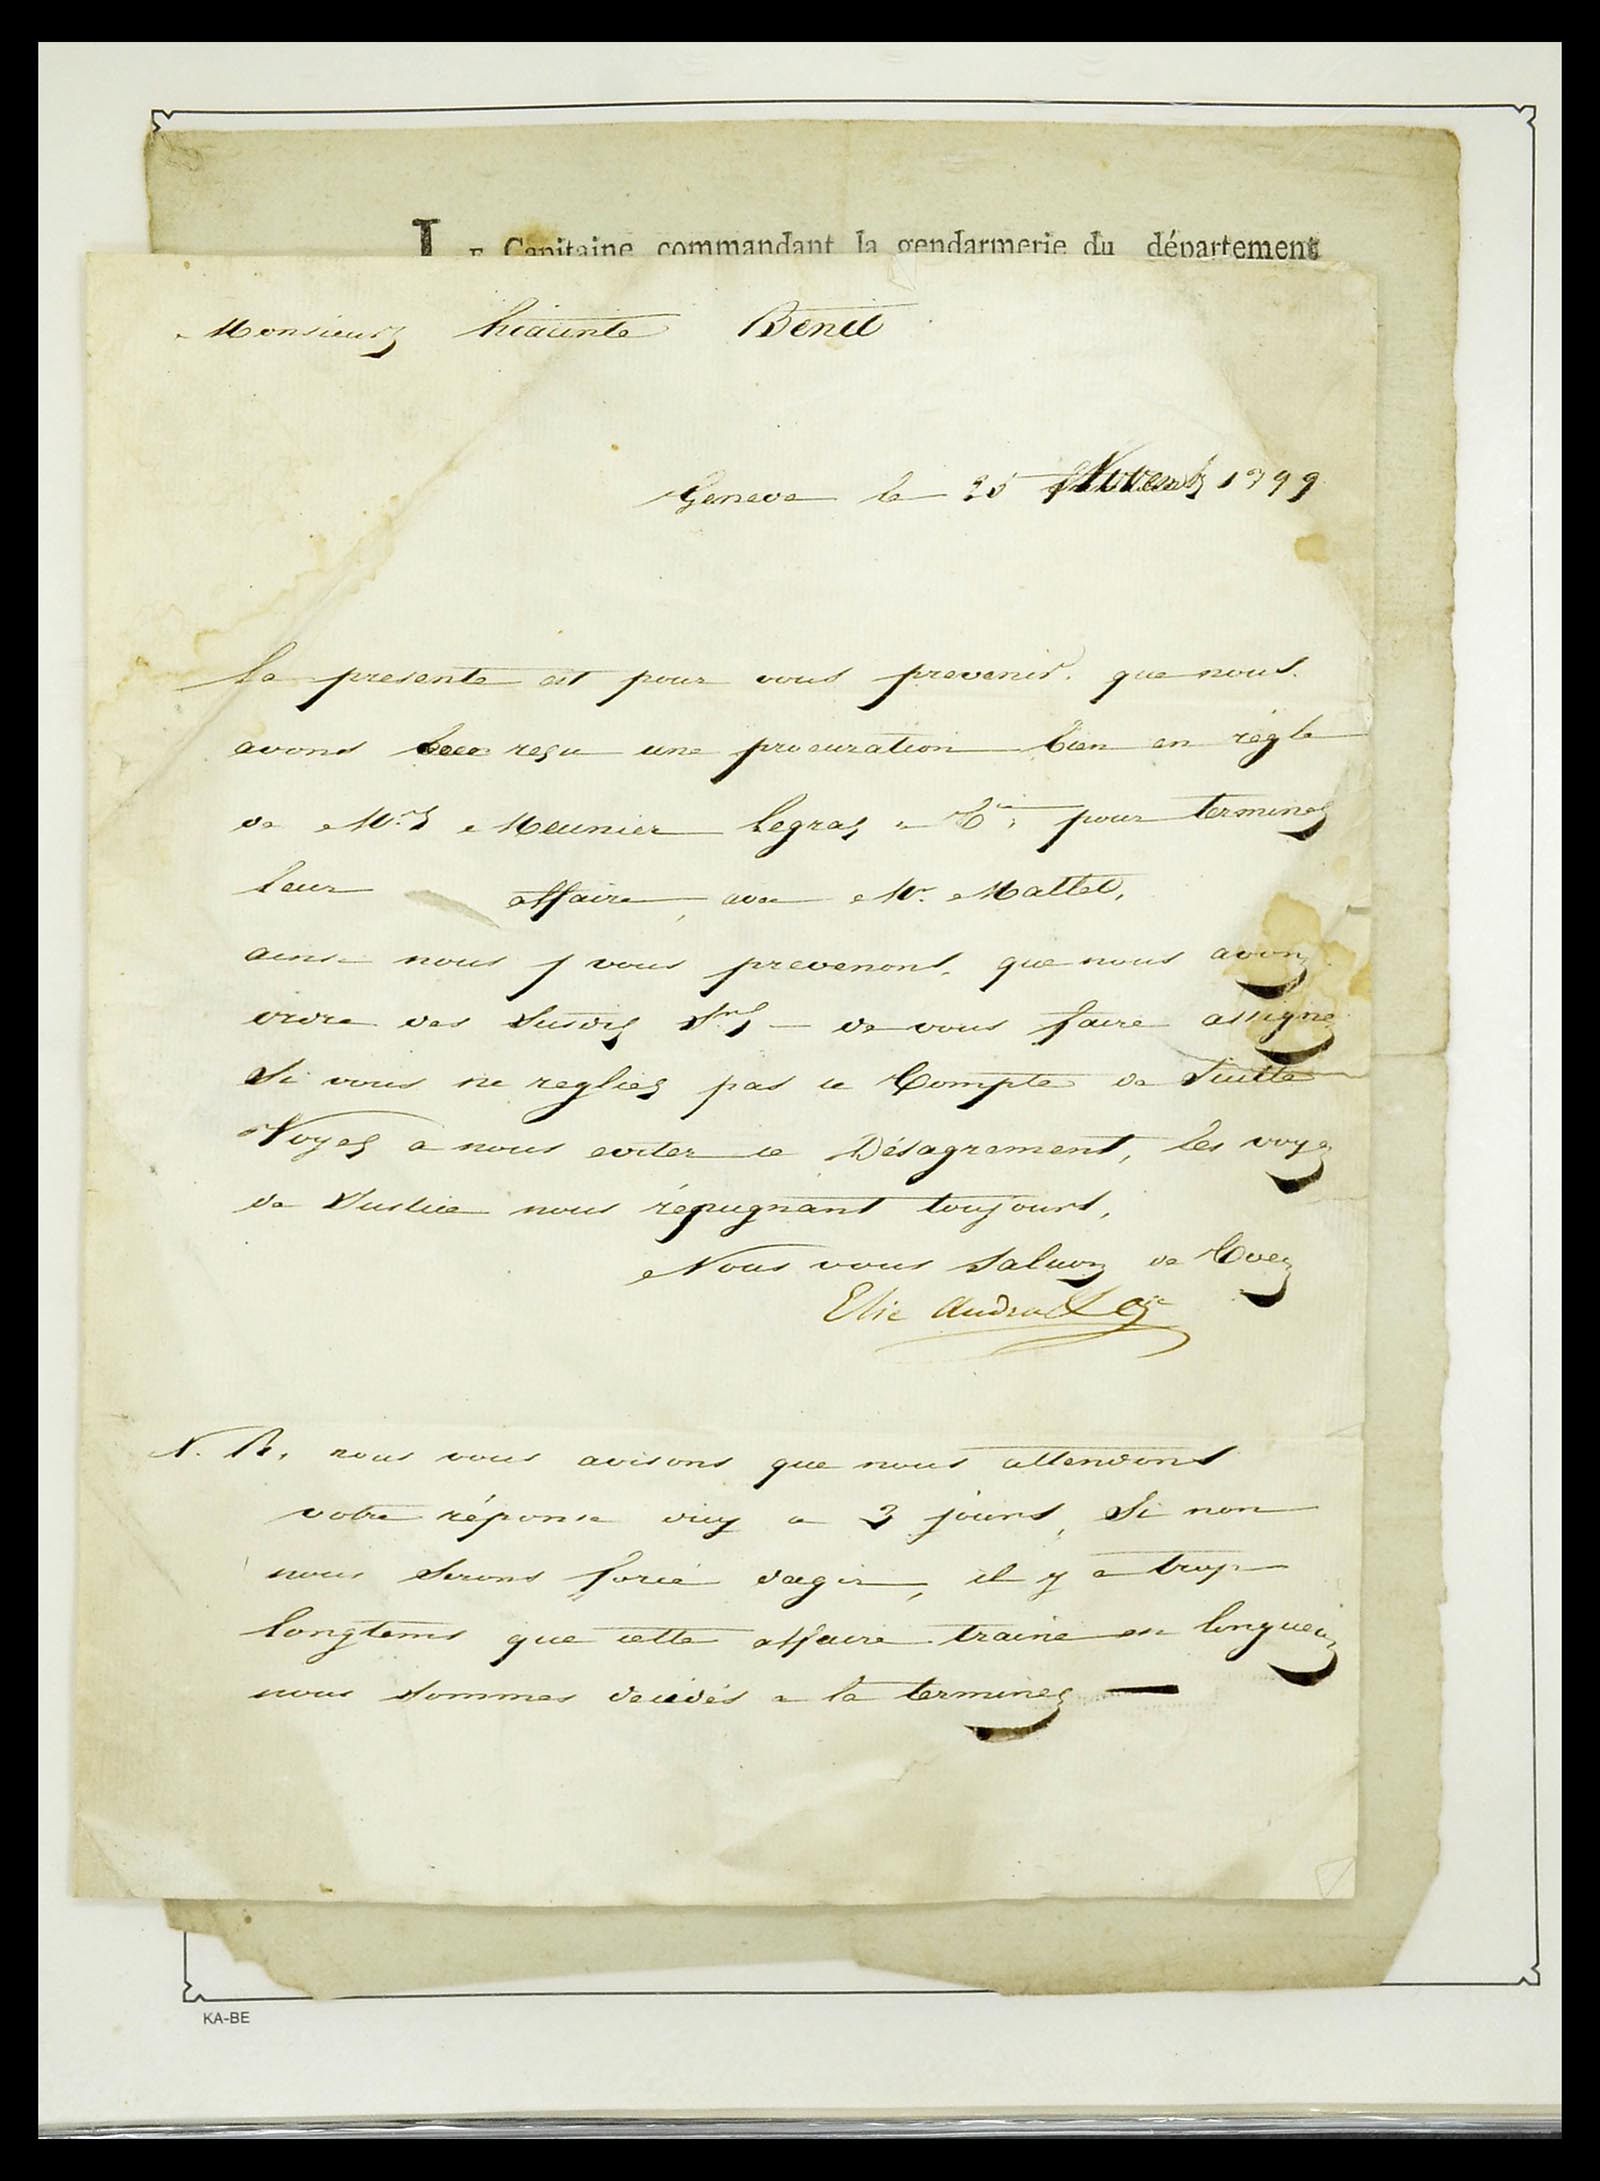 LE Capitaine commandant la gendarmerie du département
Monsieur hiacinte Benit
Geneve le 25 Novemb 1799
La presente est pour vous prevenir. que nous.
avons reçu une procuration bien en règle
de Mrs Meunier Legras & Cie, pour terminer
leur affaire, avec Mr. Mallet,
ainsi nous vous prevenons, que nous avons
ordre des Susdis Srs - de vous faire assigner
Si vous ne reglies pas ce Compte de Suitte
Voyes a nous eviter ce Désagrement, les voyes
de Justice nous répugnant toujours,
Nous vous Saluons de Coeur
Elie Audra & Cie
N. B. nous vous avisons que nous attendons
votre réponse dicy a 3 jours, Si non
nous Serons forcé dagir, il y a trop
longtems que cette affaire traine en longueur
nous Sommes decidés a la terminer —
KA-BE